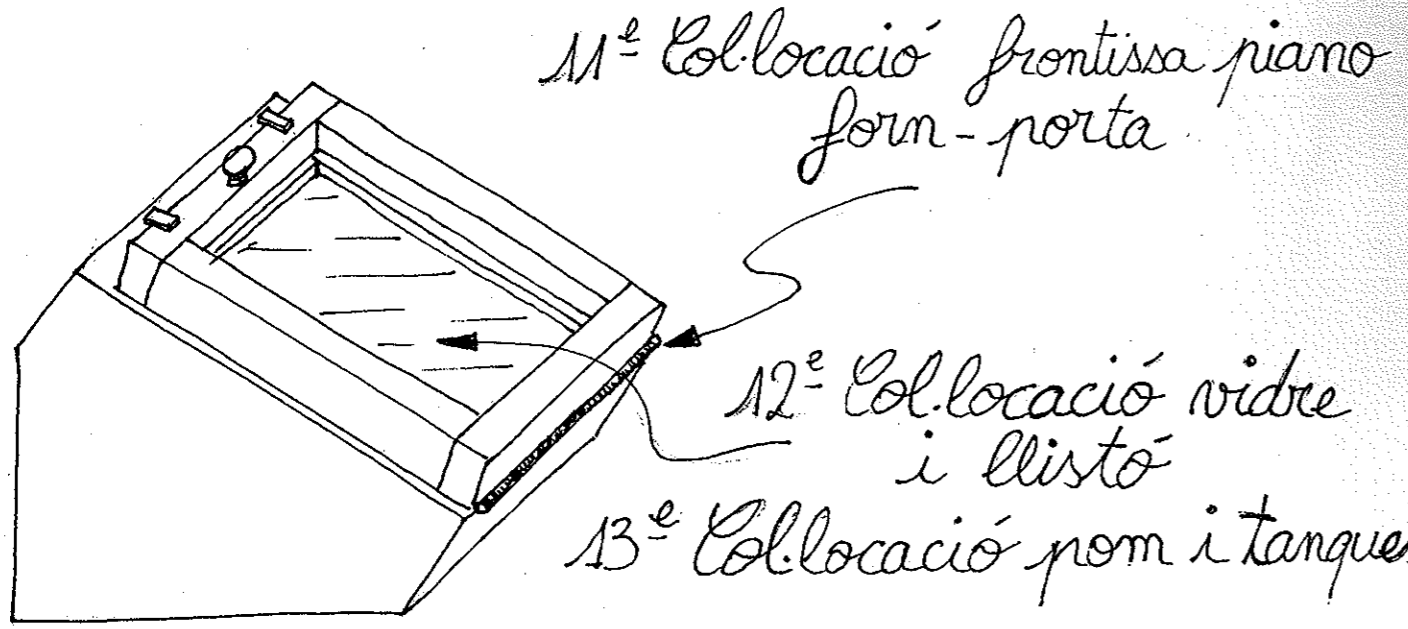 11ᵉ Col·locació frontissa piano
forn-porta
12ᵉ Col·locació vidre
i llistó
13ᵉ Col·locació pom i tanques